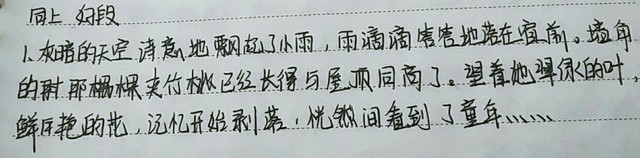 同上 好段
1.灰暗的天空诗意地飘起了小雨，雨滴滴答答地落在窗前。墙角
的那棵夹竹桃已经长得与屋顶同高了。望着她翠绿的叶，
鲜艳的花，记忆开始剥落，恍惚间看到了童年……